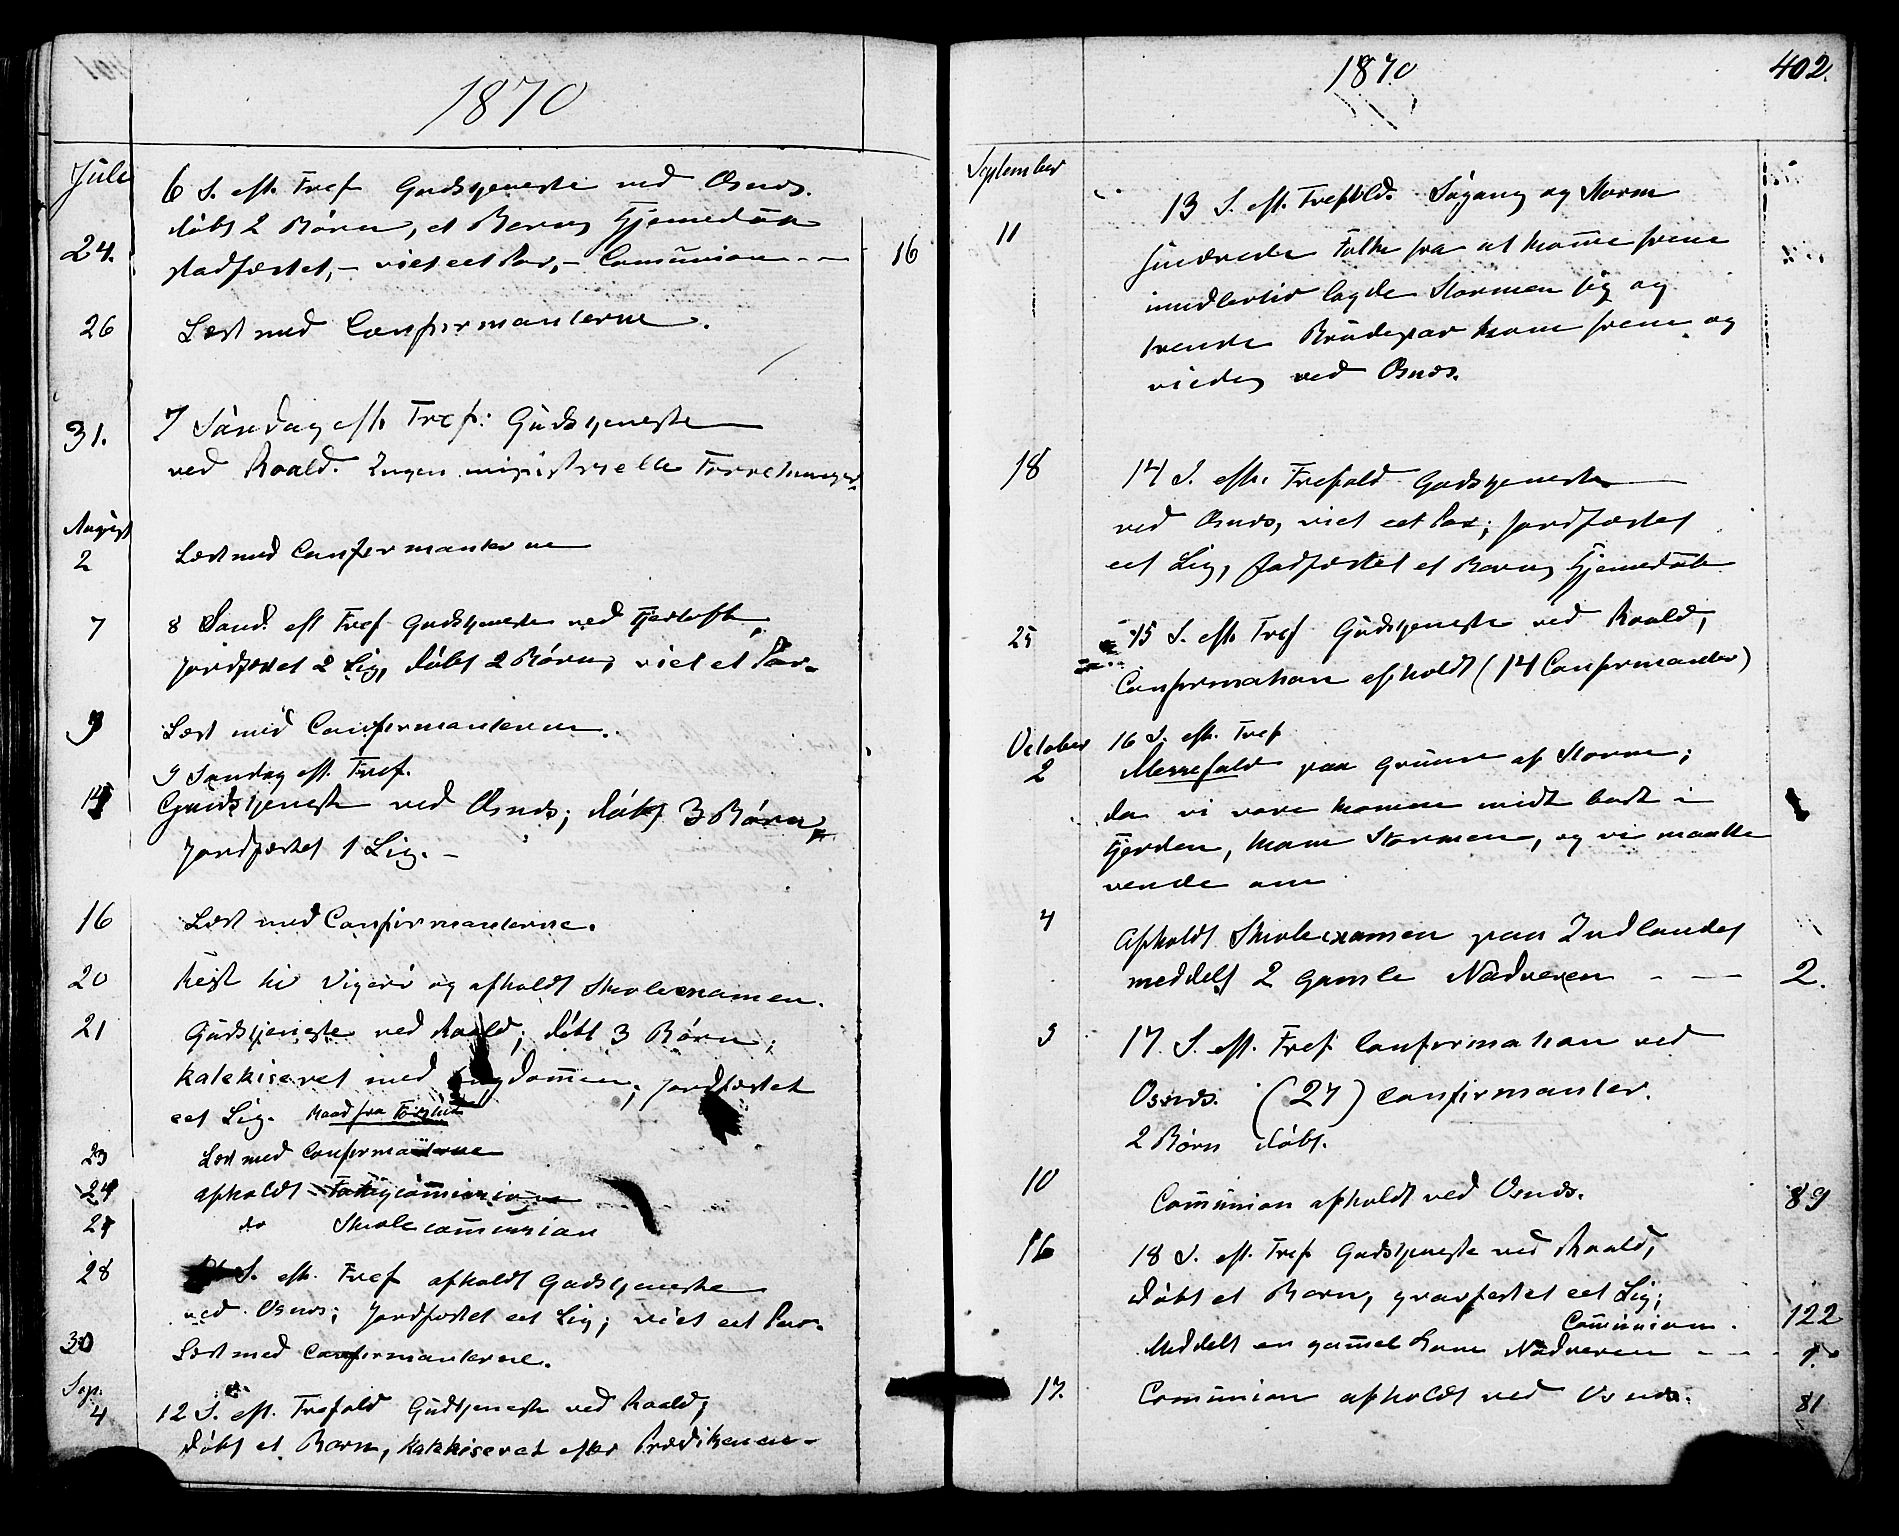 1870
Juli
6 S. eft. Tref Gudstjeneste ved Osnæs.
24. døbt 2 Børn, et Barns Hjemedåb
stadfæstet, – viet eet Par, – Communion – – 16
26 Læst med Confirmanterne.
31. 7 Søndag eft. Tref: Gudstjeneste
ved Roald. Ingen ministrielle Forretninger.
August
2 Læst med Confirmanterne
7 8 Sønd. eft Tref Gudstjeneste ved Fjertoft,
jordfæstet 2 Lig, døbt 2 Børn, viet et Par.
9 Læst med Confirmanterne.
9 Søndag eft. Tref.
14 Gudstjeneste ved Osnæs; døbt 3 Børn,
Jordfæstet 1 Lig. –
16 Læst med Confirmanterne.
20 Reist til Vigerø og afholdt Skoleexamen.
21 Gudstjeneste ved Roald; døbt 3 Børn;
katekiseret med Ungdommen; jordfæstet
eet Lig. Maad fra
23 Læst med Confirmanterne
24 afholdt Fattigcommission
24 do Skolecommission
28 S. eft. Tref afholdt Gudstjeneste
ved Osnæs; Jordfæstet eet Lig; viet eet Par.
30 Læst med Confirmanterne.
Sep.
4 12 S. eft. Trefold Gudstjeneste ved Roald;
døbt et Barn, Katekiseret efter Prædikenen.
1870 402.
September
11 13 S. eft. Trefold. Søgang og Storm
hindrede Folk fra at komme frem
imidlertid lagde Stormen sig og
trende Brudepar kom frem og
viedes ved Osnæs.
18 14 S. eft. Trefold Gudstjeneste
ved Osnæs, viet eet Par; jordfæstet
eet Lig, stadfæstet et Barns Hjemedåb
25 15 S. eft Tref Gudstjeneste ved Roald,
Confirmation afholdt (14 Confirmander)
October 16 S. eft. Tref
2 Messefald paa Grund af Storm;
da vi vare komne midt bort i
Fjorden, kom Stormen, og vi maatte
vende om
4 Afholdt Skoleexamen paa Indlandet
meddelt 2 gamle Nadveren – – 2.
9 17 S. eft. Tref Confirmation ved
Osnæs. (27) Confirmanter.
2 Børn døbt.
10 Communion afholdt ved Osnæs. 89
16 18 S. eft. Tref Gudstjeneste ved Roald,
døbt et Barn, gravfæstet eet Lig;
Communion. 122
Meddelt en gammel Kone Nadveren – – 1.
17. Communion afholdt ved Osnæs. 81